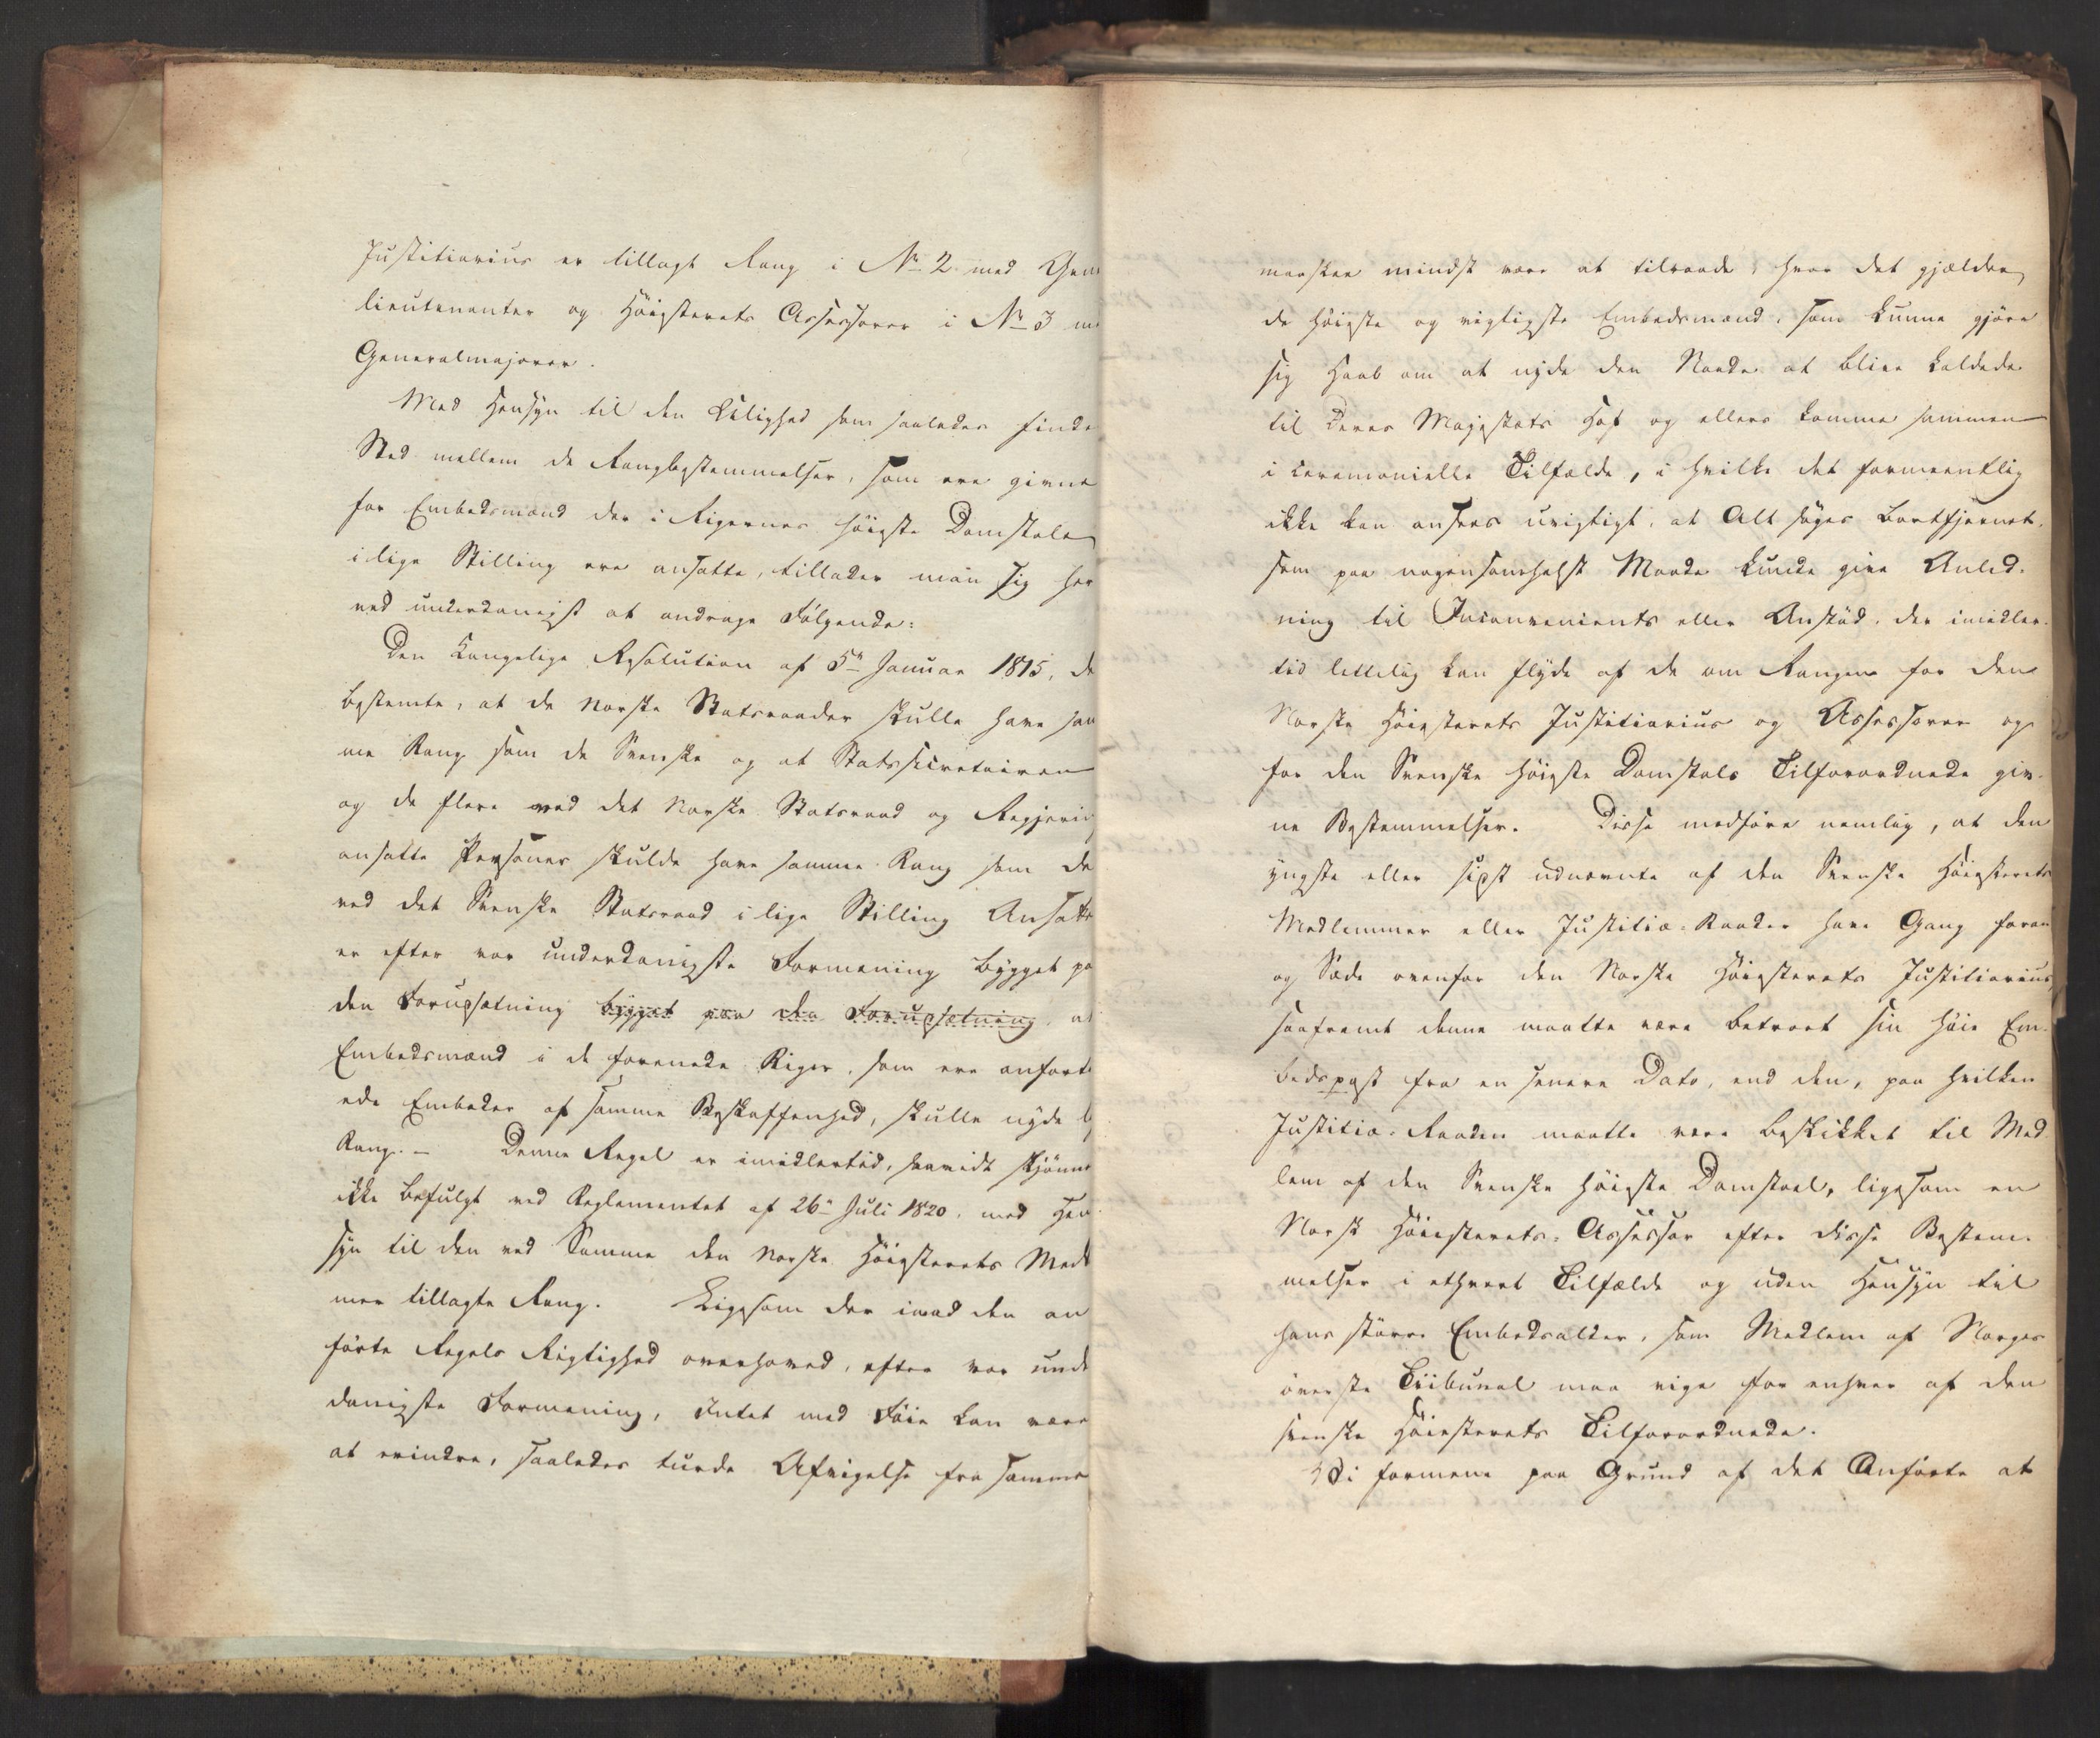 Justitiarius er tillagt Rang i No 2 med Gen
lieutenanter og Höiesterets Assessorer i No 3 m
Generalmajorer.
Med Hensyn til den Ulighed som saaledes finde
Sted mellem de Rangbestemmelser, som ere givne
for Embedsmænd der i Rigernes høieste Domstole
i lige Stilling ere ansatte, tillader man sig her
ved underdanigst at andrage Følgende:
Den Kongelige Resolution af 5te Januar 1815, de
bestemte, at de Norske Statsraader skulle have sam
me Rang som de Svenske og at Statssecretairen
og de flere ved det Norske Statsraad og Regjering
ansatte Personer skulde have samme Rang som de
ved det Svenske Statsraad i lige Stilling Ansatte
er efter vor underdanigste Formening bygget pa
den Forudsætning bygget paa den Forudsætning, at
Embedsmænd i de forenede Riger, som ere anfort
ede Embeder af samme Beskaffenhed, skulle nyde l
Rang. – Denne Regel er imidlertid, saavidt skjønne
ikke befulgt ved Reglementet af 26de Juli 1820, med Hen
syn til den ved Samme den Norske Høiesterets Medl
mer tillagte Rang. Ligesom der imod den an
førte Regels Rigtighed overhoved, efter vor unde
danigste Formening, Intet med Føie kan være
at erindre, saaledes turde Afvigelse fra samme
maaskee mindst være at tilraade, hvor det gjælder
de høieste og vigtigste Embedsmænd, som kunne gjøre
sig Haab om at nyde den Naade at blive kaldede
til Deres Majestæts Hof og ellers komme sammen
i ceremonielle Tilfælde, i hvilke det formeentlig
ikke kan ansees uvigtigt, at Alt søges bortfjernet,
som paa nogensomhelst Maade kunde give Anled-
ning til Inconvenients eller Anstød, der imidler-
tid lettelig kan flyde af de om Rangen for den
Norske Høiesterets Justitiarius og Assessorer og
for den Svenske høieste Domstols Tilforordnede giv-
ne Bestemmelser. Disse medføre nemlig, at den
yngste eller sidst udnævnte af den Svenske Høiesterets
Medlemmer eller Justitiæ-Raader have Gang foran
og Sæde ovenfor den Norske Høiesterets Justitiarius
saafremt denne maatte være betroet sin høie Em-
bedspost fra en senere Dato, end den, paa hvilken
Justitiæ-Raaden maatte være beskikket til Med
lem af den Svenske høieste Domstol, ligesom en
Norsk Høiesterets-Assessor efter disse Bestem-
melser i ethvert Tilfælde og uden Hensyn til
hans større Embedsalder, som Medlem af Norges
øverste Tribunal maa vige for enhver af den
svenske Høiesterets Tilforordnede.
Vi formene paa Grund af det Anførte at